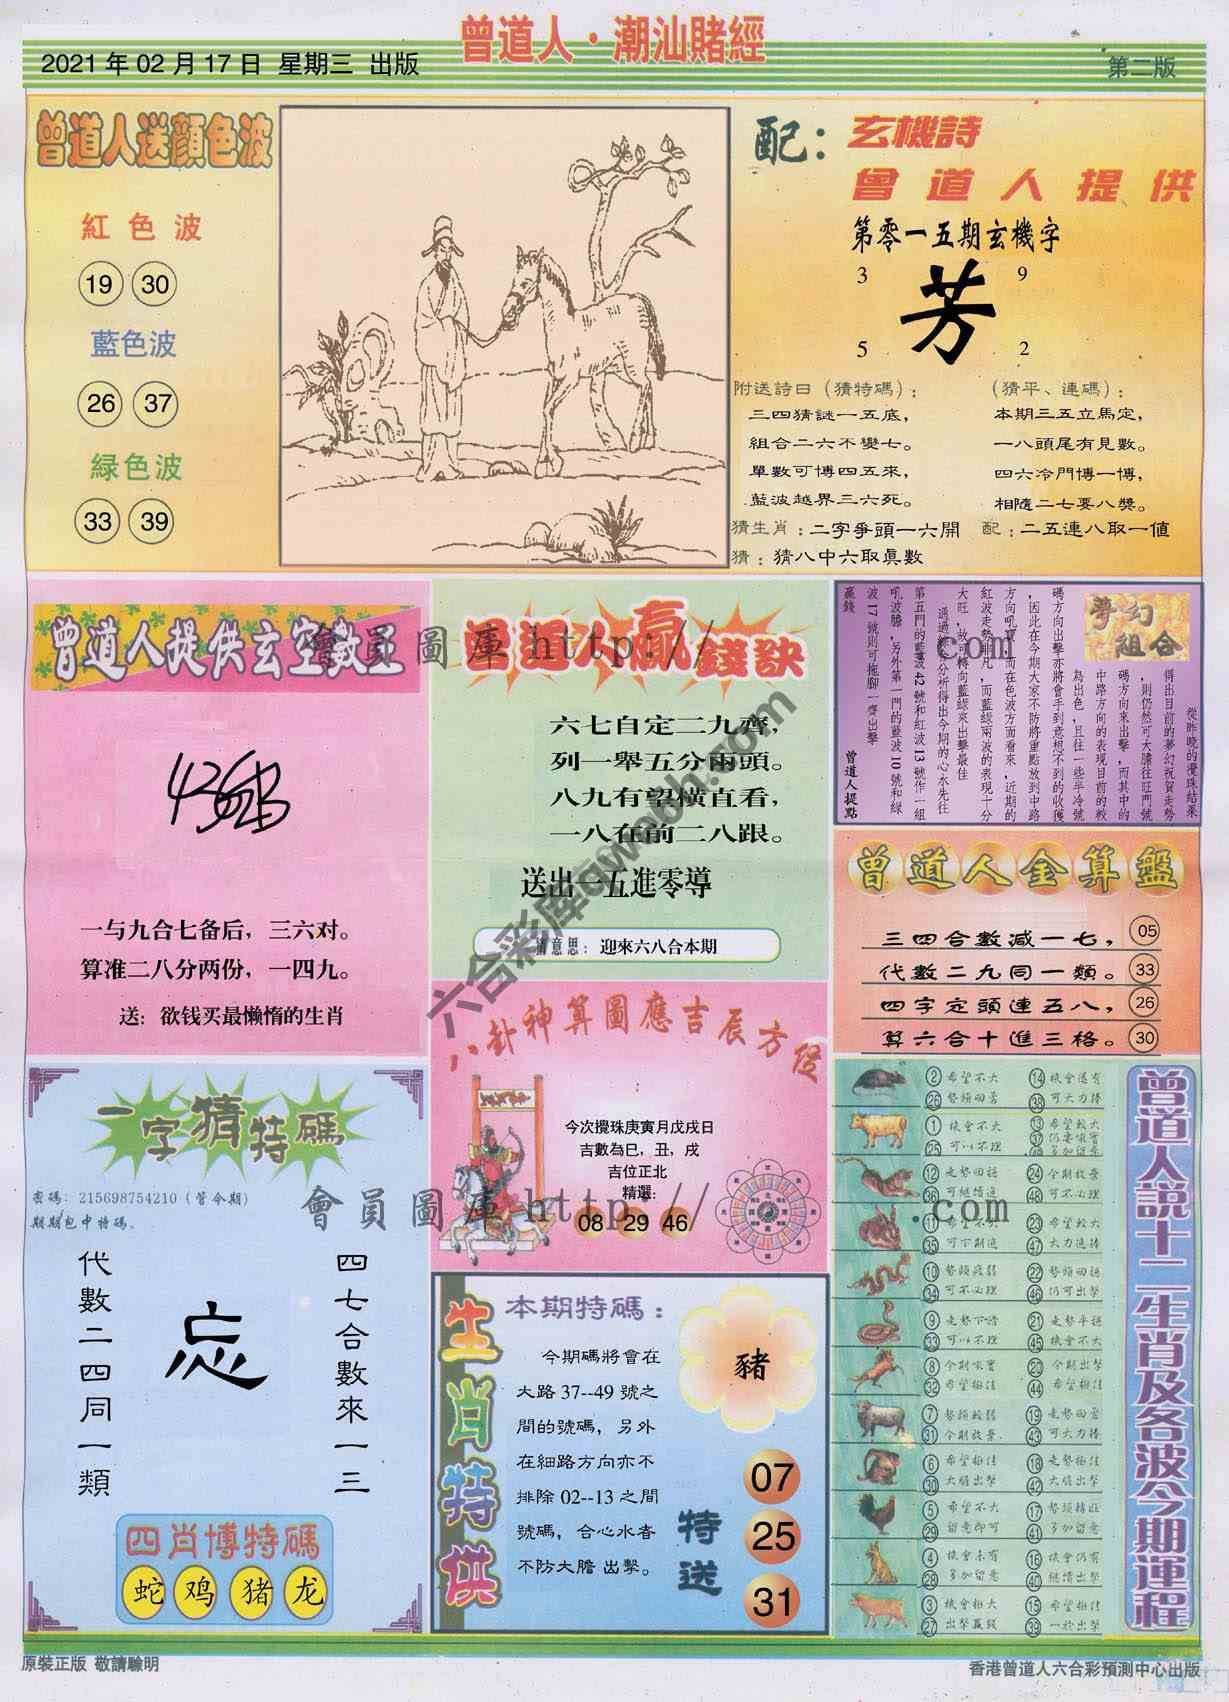 曾道人·潮汕賭經
2021年02月17日 星期三 出版
第二版
曾道人送顏色波
紅色波
19 30
藍色波
26 37
緑色波
33 39
配：玄機詩
曾道人提供
第零一五期玄機字
3 9
芳
5 2
附送詩曰（猜特碼）：
三四猜謎一五底，
組合二六不變七。
單數可博四五來，
藍波越界三六死。
（猜平、連碼）：
本期三五立馬定，
一八頭尾有見數。
四六冷門博一博，
相隨二七要八獎。
猜生肖：二字爭頭一六開
配：二五連八取一値
猜：猜八中六取眞數
曾道人提供玄空數王
一与九合七备后，三六对。
算准二八分两份，一四九。
送：欲钱买最懒惰的生肖
曾道人贏錢訣
六七自定二九齊，
列一舉五分兩頭。
八九有望横直看，
一八在前二八跟。
送出 五進零導
猜意思：迎來六八合本期
夢幻
組合
從昨晚的攪珠結果
得出目前的夢幻祝賀走勢
，則仍然可大膽往旺門號
碼方向來出擊，而其中的
中路方向的表現目前的較
為出色，且往一些半冷號
碼方向出擊亦將會手到意想不到的收獲
，因此在今期大家不防將重點放到中路
方向吼寶，而在色波方面看來，近期的
紅波走勢非凡，而藍綠兩波的表現十分
大旺，故可轉向藍綠來出擊最佳
通過經分析得出今期的心水先往
第五門的藍波42號和紅波13號作一組
吼波膽，另外第一門的藍波10號和綠
波17號則可拖腳一齊出擊
贏錢
曾道人提點
曾道人金算盤
三四合數减一七， 05
代數二九同一類。 33
四字定頭連五八， 26
算六合十進三格。 30
八卦神算圖應吉辰方位
今次攪珠庚寅月戊戌日
吉數為巳，丑，戌
吉位正北
精選：
08 29 46
一字猜特碼
密碼：215698754210（管令期）
期期包中特碼。
四七合數來一三
忘
代數二四同一類
四肖博特碼
蛇 鸡 猪 龙
生肖特供
本期特碼：
今期碼將會在
大路37--49號之
間的號碼，另外
在細路方向亦不
排除02--13之間
號碼，合心水者
不防大膽出擊。
豬
特送
07
25
31
曾道人說十二生肖及各波今期運程
2 希望不大 14 機會還有
26 勢頭回落 38 可大力捧
1 機會不大 13 希望較大
25 可以不理
12 走勢回穩 24 今期放棄
36 可繼續追 48 可不必理
23 希望較大
35 可下期追 47 大力追捧
10 勢頭疲弱 22 勢頭回穩
34 可不必理 46 仍可出擊
9 走勢下滑 21 走勢平穩
33 可以不理 45 機會不大
8 今期吼寶 20 今期出擊
32 希望極佳 44 希望極佳
7 勢頭較弱 19 走勢回落
31 今期放棄 43 可大力捧
6 希望極佳 18 走勢極佳
30 大膽出擊 42 大膽出擊
5 希望不大 17 勢頭轉旺
29 留意即可 41 多加留意
4 機會未有 16 機會仍有
28 多加留意 40 繼續出擊
3 機會極大 15 希望極佳
27 出擊贏錢 39 一於出擊
會員圖庫 http:// .com
會員圖庫 http:// .com
六合彩库gwebh.com
原裝正版 敬請驗明
香港曾道人六合彩預測中心出版